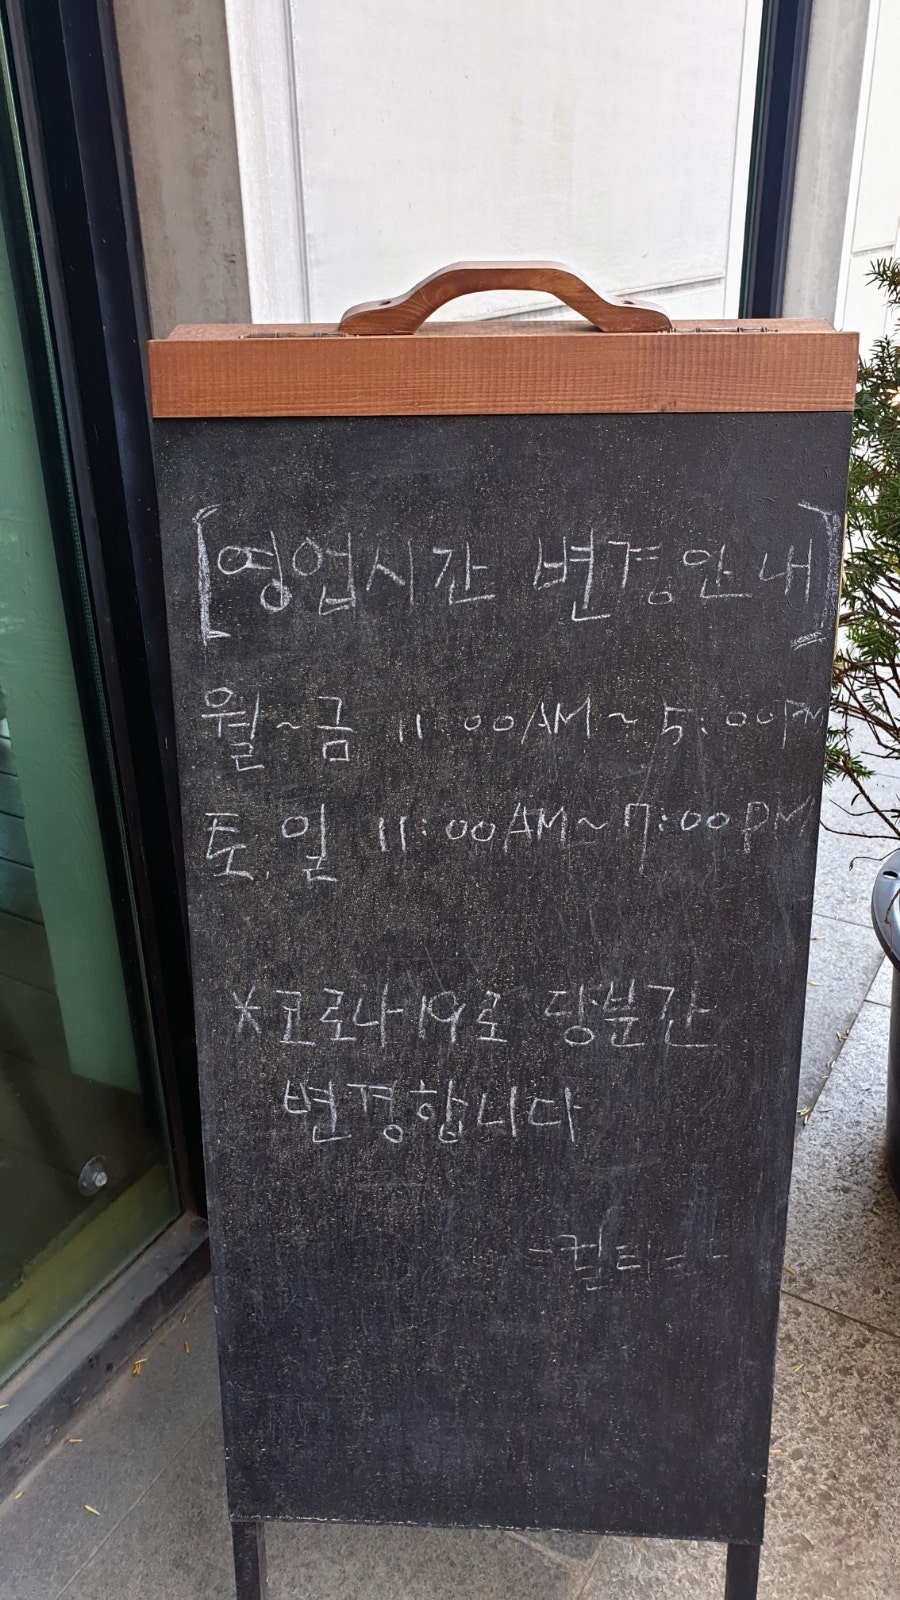 [영업시간 변경안내]
월~금 11:00AM~5:00PM
토.일 11:00AM~7:00PM
*코로나19로 당분간
변경합니다